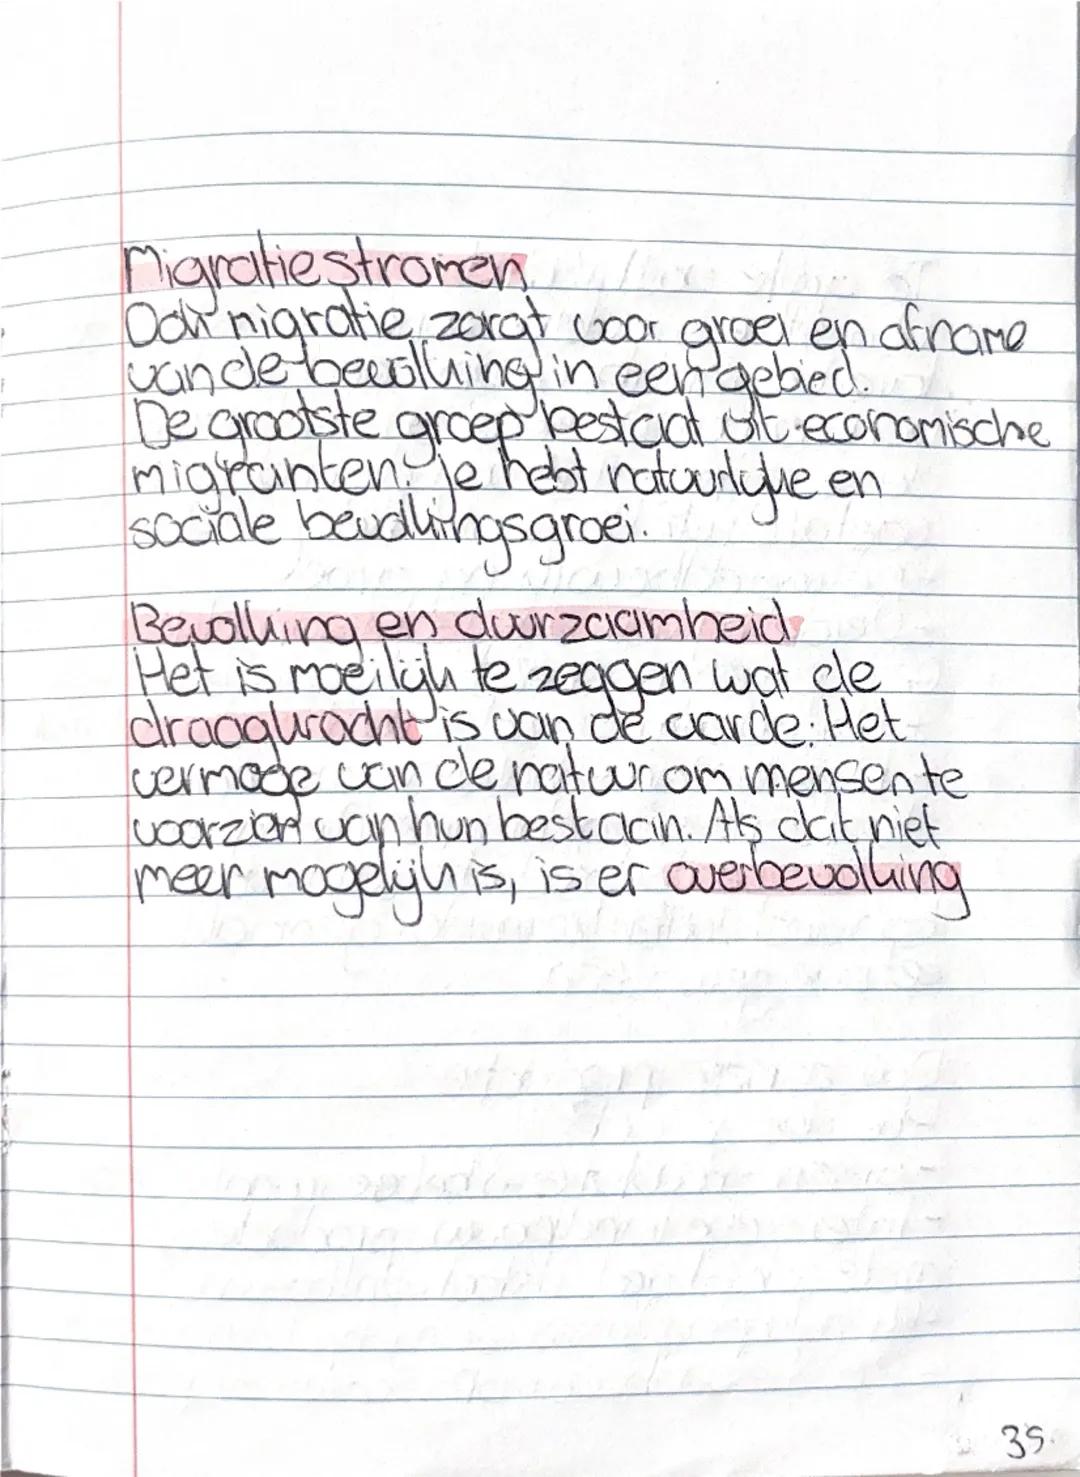 Migratiestromen
Ook migratie zorgt voor groei en afname
van de bevolking in een gebied.
De grootste groep bestaat uit economische
migranten. je hebt natuurlijke en
sociale bevolkingsgroei.
Bevolking en duurzaamheid
Het is moeilijk te zeggen wat de
draagkracht is van de aarde. Het
vermoge van de natuur om mensen te
voorzien van hun bestaan. Als dat niet
meer mogelijk is, is er overbevolking
39.